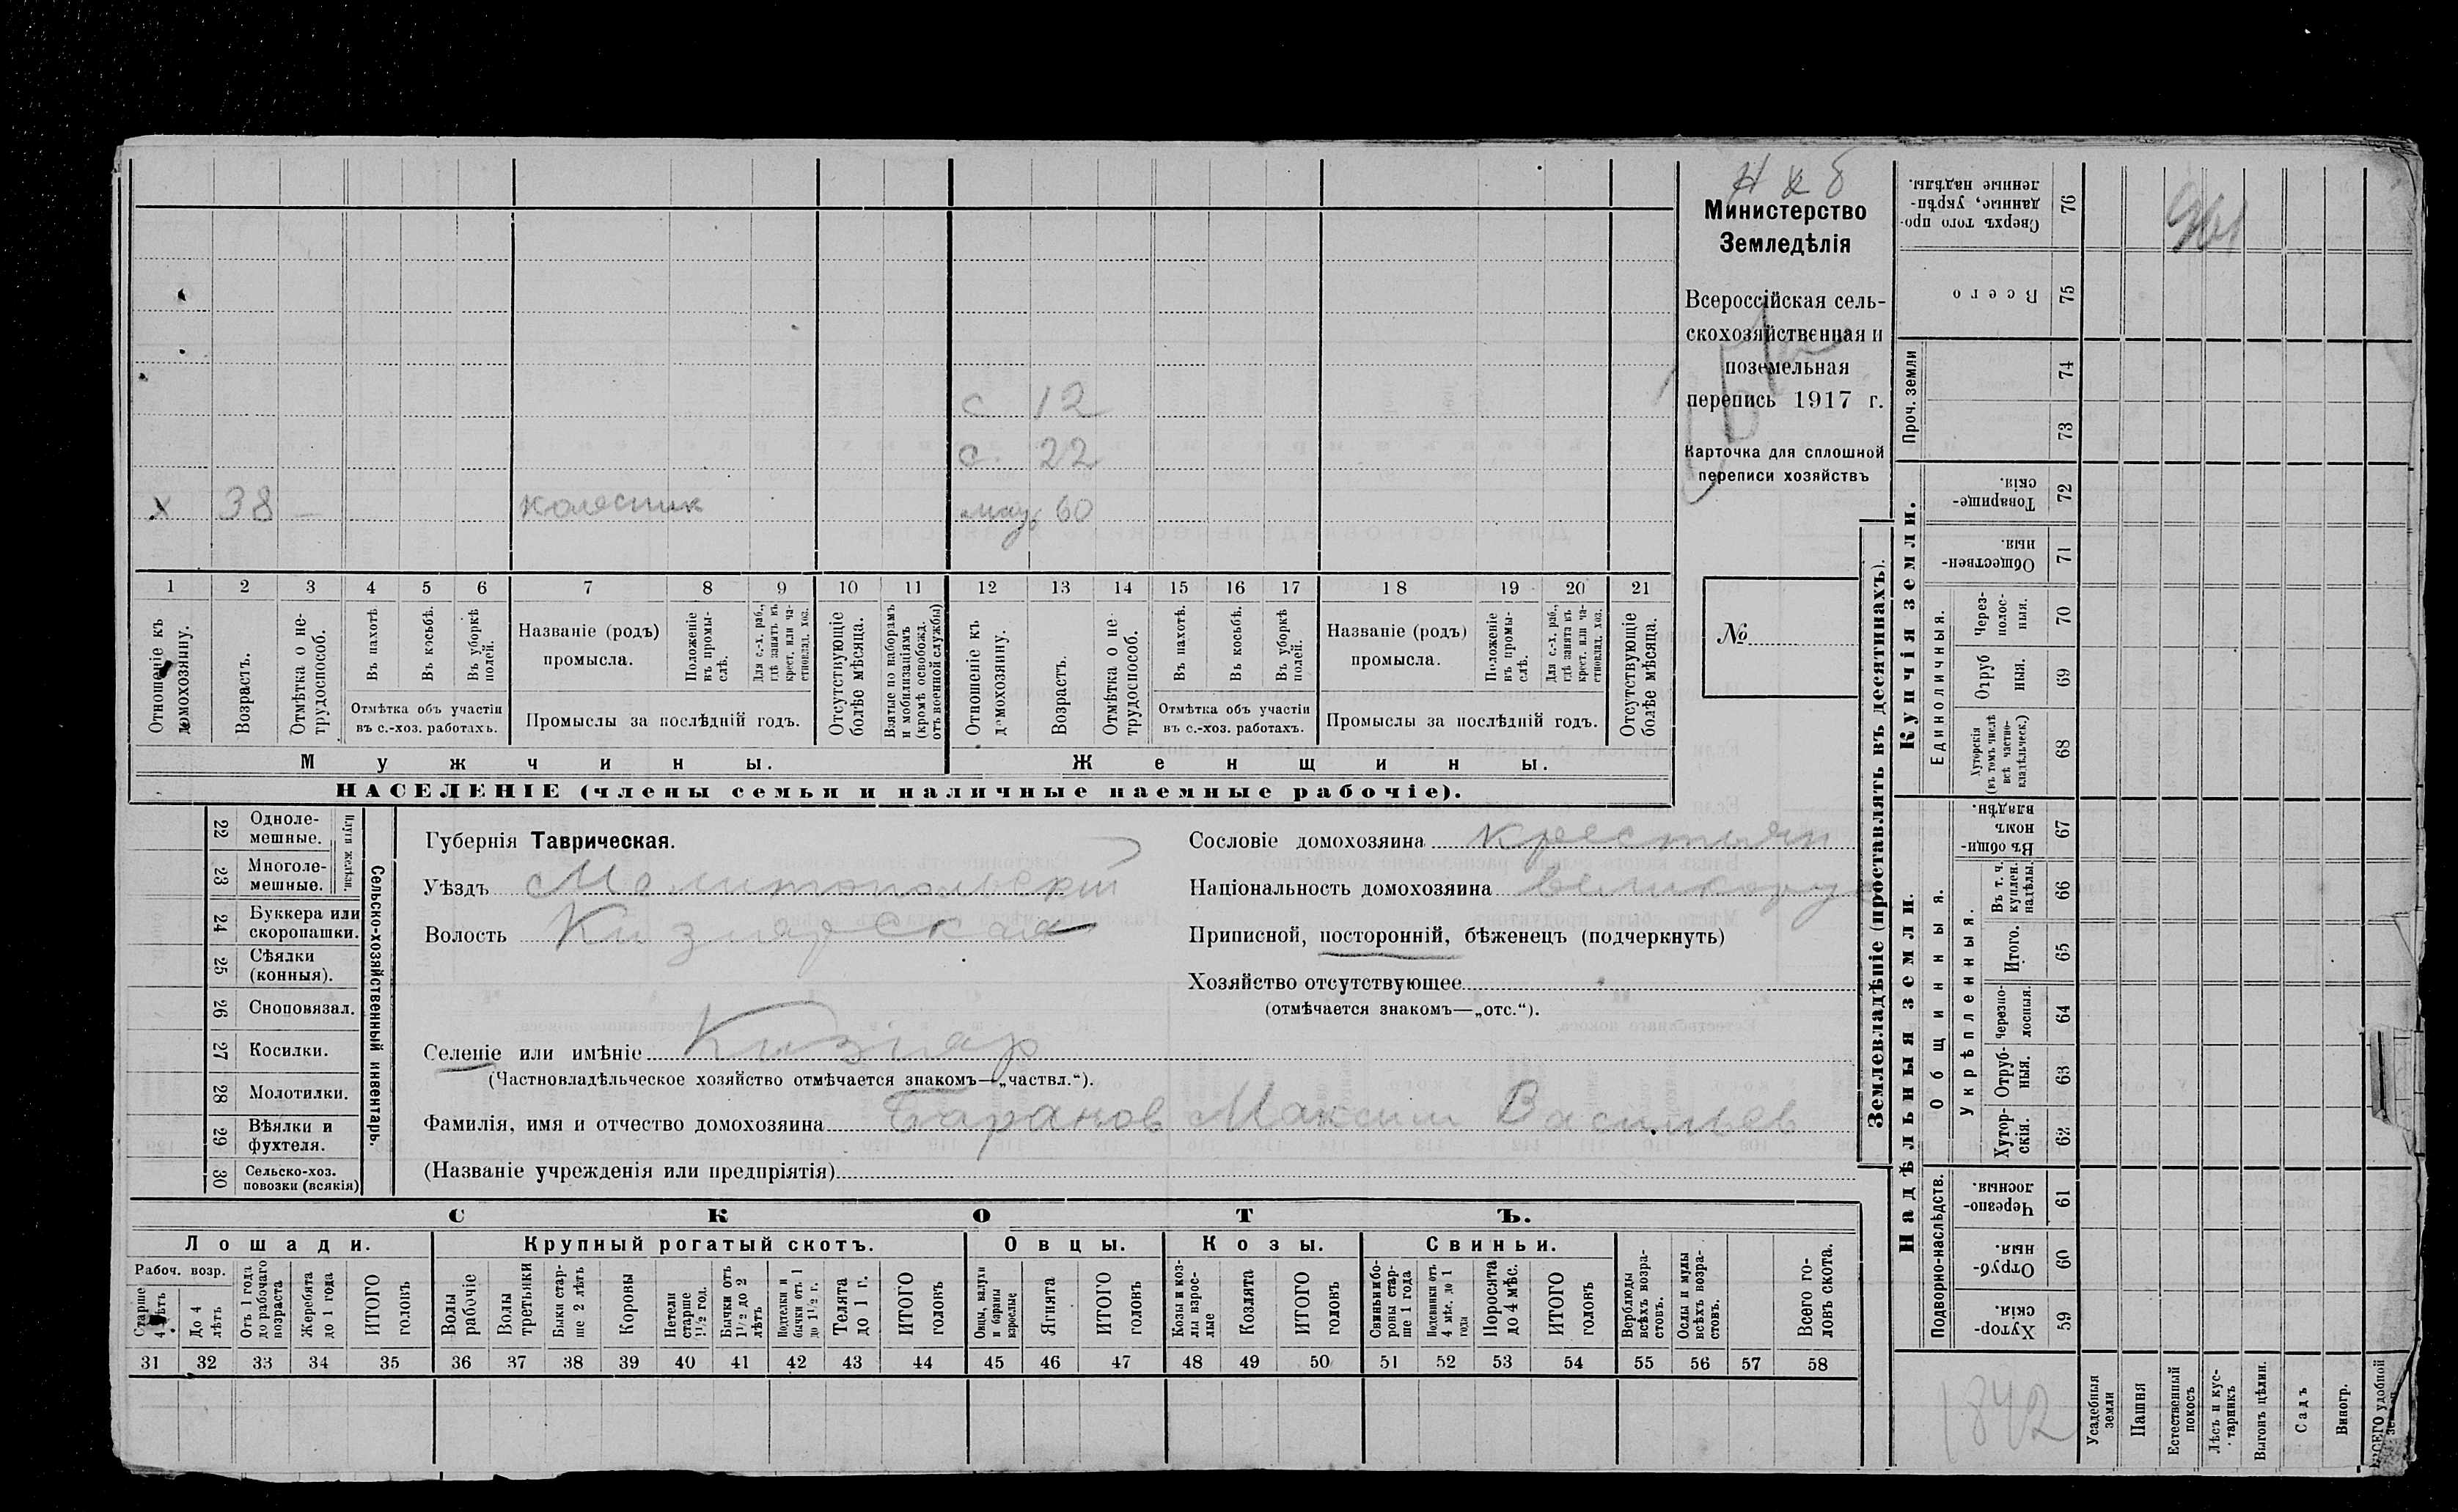 Министерство
Земледѣлія
Всероссійская сель-
скохозяйственная и
поземельная
перепись 1917 г.
Карточка для сплошной
переписи хозяйствъ
№
с 12
с. 22
х 38 — колесник 60
1 2 3 4 5 6 7 8 9 10 11 12 13 14 15 16 17 18 19 20 21
Отношеніе къ домохозяину.
Возрастъ.
Отмѣтка о не-
трудоспособ.
Въ пахотѣ
Въ косьбѣ.
Въ уборкѣ
полей.
Отмѣтка объ участіи
въ с.-хоз. работахъ.
Названіе (родъ)
промысла.
Положеніе
въ промы-
слѣ.
Для с.-х. раб.,
гдѣ занятъ въ
крест. или ча-
стновлад. хоз.
Промыслы за послѣдній годъ.
Отсутствующіе
болѣе мѣсяца.
Взятые по наборамъ
и мобилизаціямъ
(кромѣ освобожд.
отъ военной службы)
Отношеніе къ
домохозяину.
Возрастъ.
Отмѣтка о не
трудоспособ.
Въ пахотѣ.
Въ косьбѣ.
Въ уборкѣ
полей.
Отмѣтка объ участіи
въ с.-хоз. работахъ.
Названіе (родъ)
промысла.
Положеніе
въ промы-
слѣ.
Для с.-х. раб.,
гдѣ занята въ
крест. или ча-
стновлад. хоз.
Промыслы за послѣдній годъ.
Отсутствующіе
болѣе мѣсяца.
Мужчины.
Женщины.
НАСЕЛЕНІЕ (члены семьи и наличные наемные рабочіе).
22 Однолe-
мешные.
23 Многоле-
мешные.
Плуги желѣзн.
24 Буккера или
скоропашки.
25 Сѣялки
(конныя).
26 Сноповязал.
27 Косилки.
28 Молотилки.
29 Вѣялки и
фухтеля.
30 Сельско-хоз.
повозки (всякія)
Сельско-хозяйственный инвентарь.
Губернія Таврическая.
Уѣздъ Мелитопольскій
Волость Кизиярская
Селеніе или имѣніе Кизияр
(Частновладѣльческое хозяйство отмѣчается знакомъ—„частвл.“).
Фамилія, имя и отчество домохозяина Баранов Максим Васильев
(Названіе учрежденія или предпріятія)
Сословіе домохозяина крестьян
Національность домохозяина великорус
Приписной, посторонній, бѣженецъ (подчеркнуть)
Хозяйство отсутствующее
(отмѣчается знакомъ—„отс.“).
СКОТЪ.
Лошади.
Крупный рогатый скотъ.
Овцы.
Козы.
Свиньи.
Рабоч. возр.
Старше
4 лѣтъ
До 4
лѣтъ
Отъ 1 года
до рабочаго
возраста
Жеребята
до 1 года
ИТОГО
головъ
Волы
рабочіе
Волы
третьяки
Быки стар-
ше 2 лѣтъ
Коровы
Нетели
старше
1½ год.
Бычки отъ
1½ до 2
лѣтъ
Подтелки и
бычки отъ 1
до 1½ г.
Телята
до 1 г.
ИТОГО
головъ
Овцы, валухи
и бараны
взрослые
Ягнята
ИТОГО
головъ
Козы и коз-
лы взрос-
лые
Козлята
ИТОГО
головъ
Свиньи и бо-
ровы стар-
ше 1 года
Подсвинки отъ
4 мѣс. до 1
года
Поросята
до 4 мѣс.
ИТОГО
головъ
Верблюды
всѣхъ возра-
стовъ.
Ослы и мулы
всѣхъ возра-
стовъ.
Всего го-
ловъ скота.
31 32 33 34 35 36 37 38 39 40 41 42 43 44 45 46 47 48 49 50 51 52 53 54 55 56 57 58
Землевладѣніе (проставлять въ десятинахъ).
Надѣльныя земли.
Купчія земли.
Проч. земли
Подворно-наслѣдств.
Общинныя.
Укрѣпленныя.
Единоличныя.
Сверхъ того про-
данные, укрѣп-
ленные надѣлы. 76
Всего 75
74
73
Товарище-
скія. 72
Обществен-
ныя. 71
Через-
полос-
ныя. 70
Отруб
ныя. 69
Хуторскія
(въ томъ числѣ
всѣ частно-
владѣльческ.) 68
Въ общин-
номъ
владѣн. 67
Въ т. ч.
куплен.
надѣлы. 66
Итого. 65
Черезпо-
лосныя. 64
Отруб-
ныя. 63
Хутор-
скія. 62
Черезпо-
лосныя. 61
Отруб-
ныя. 60
Хутор-
скія. 59
Усадебныя
земли
Пашня
Естественный
покосъ
Лѣсъ и кус-
тарникъ
Выгонъ цѣлин.
Садъ
Виногр.
ВСЕГО удобной
1842